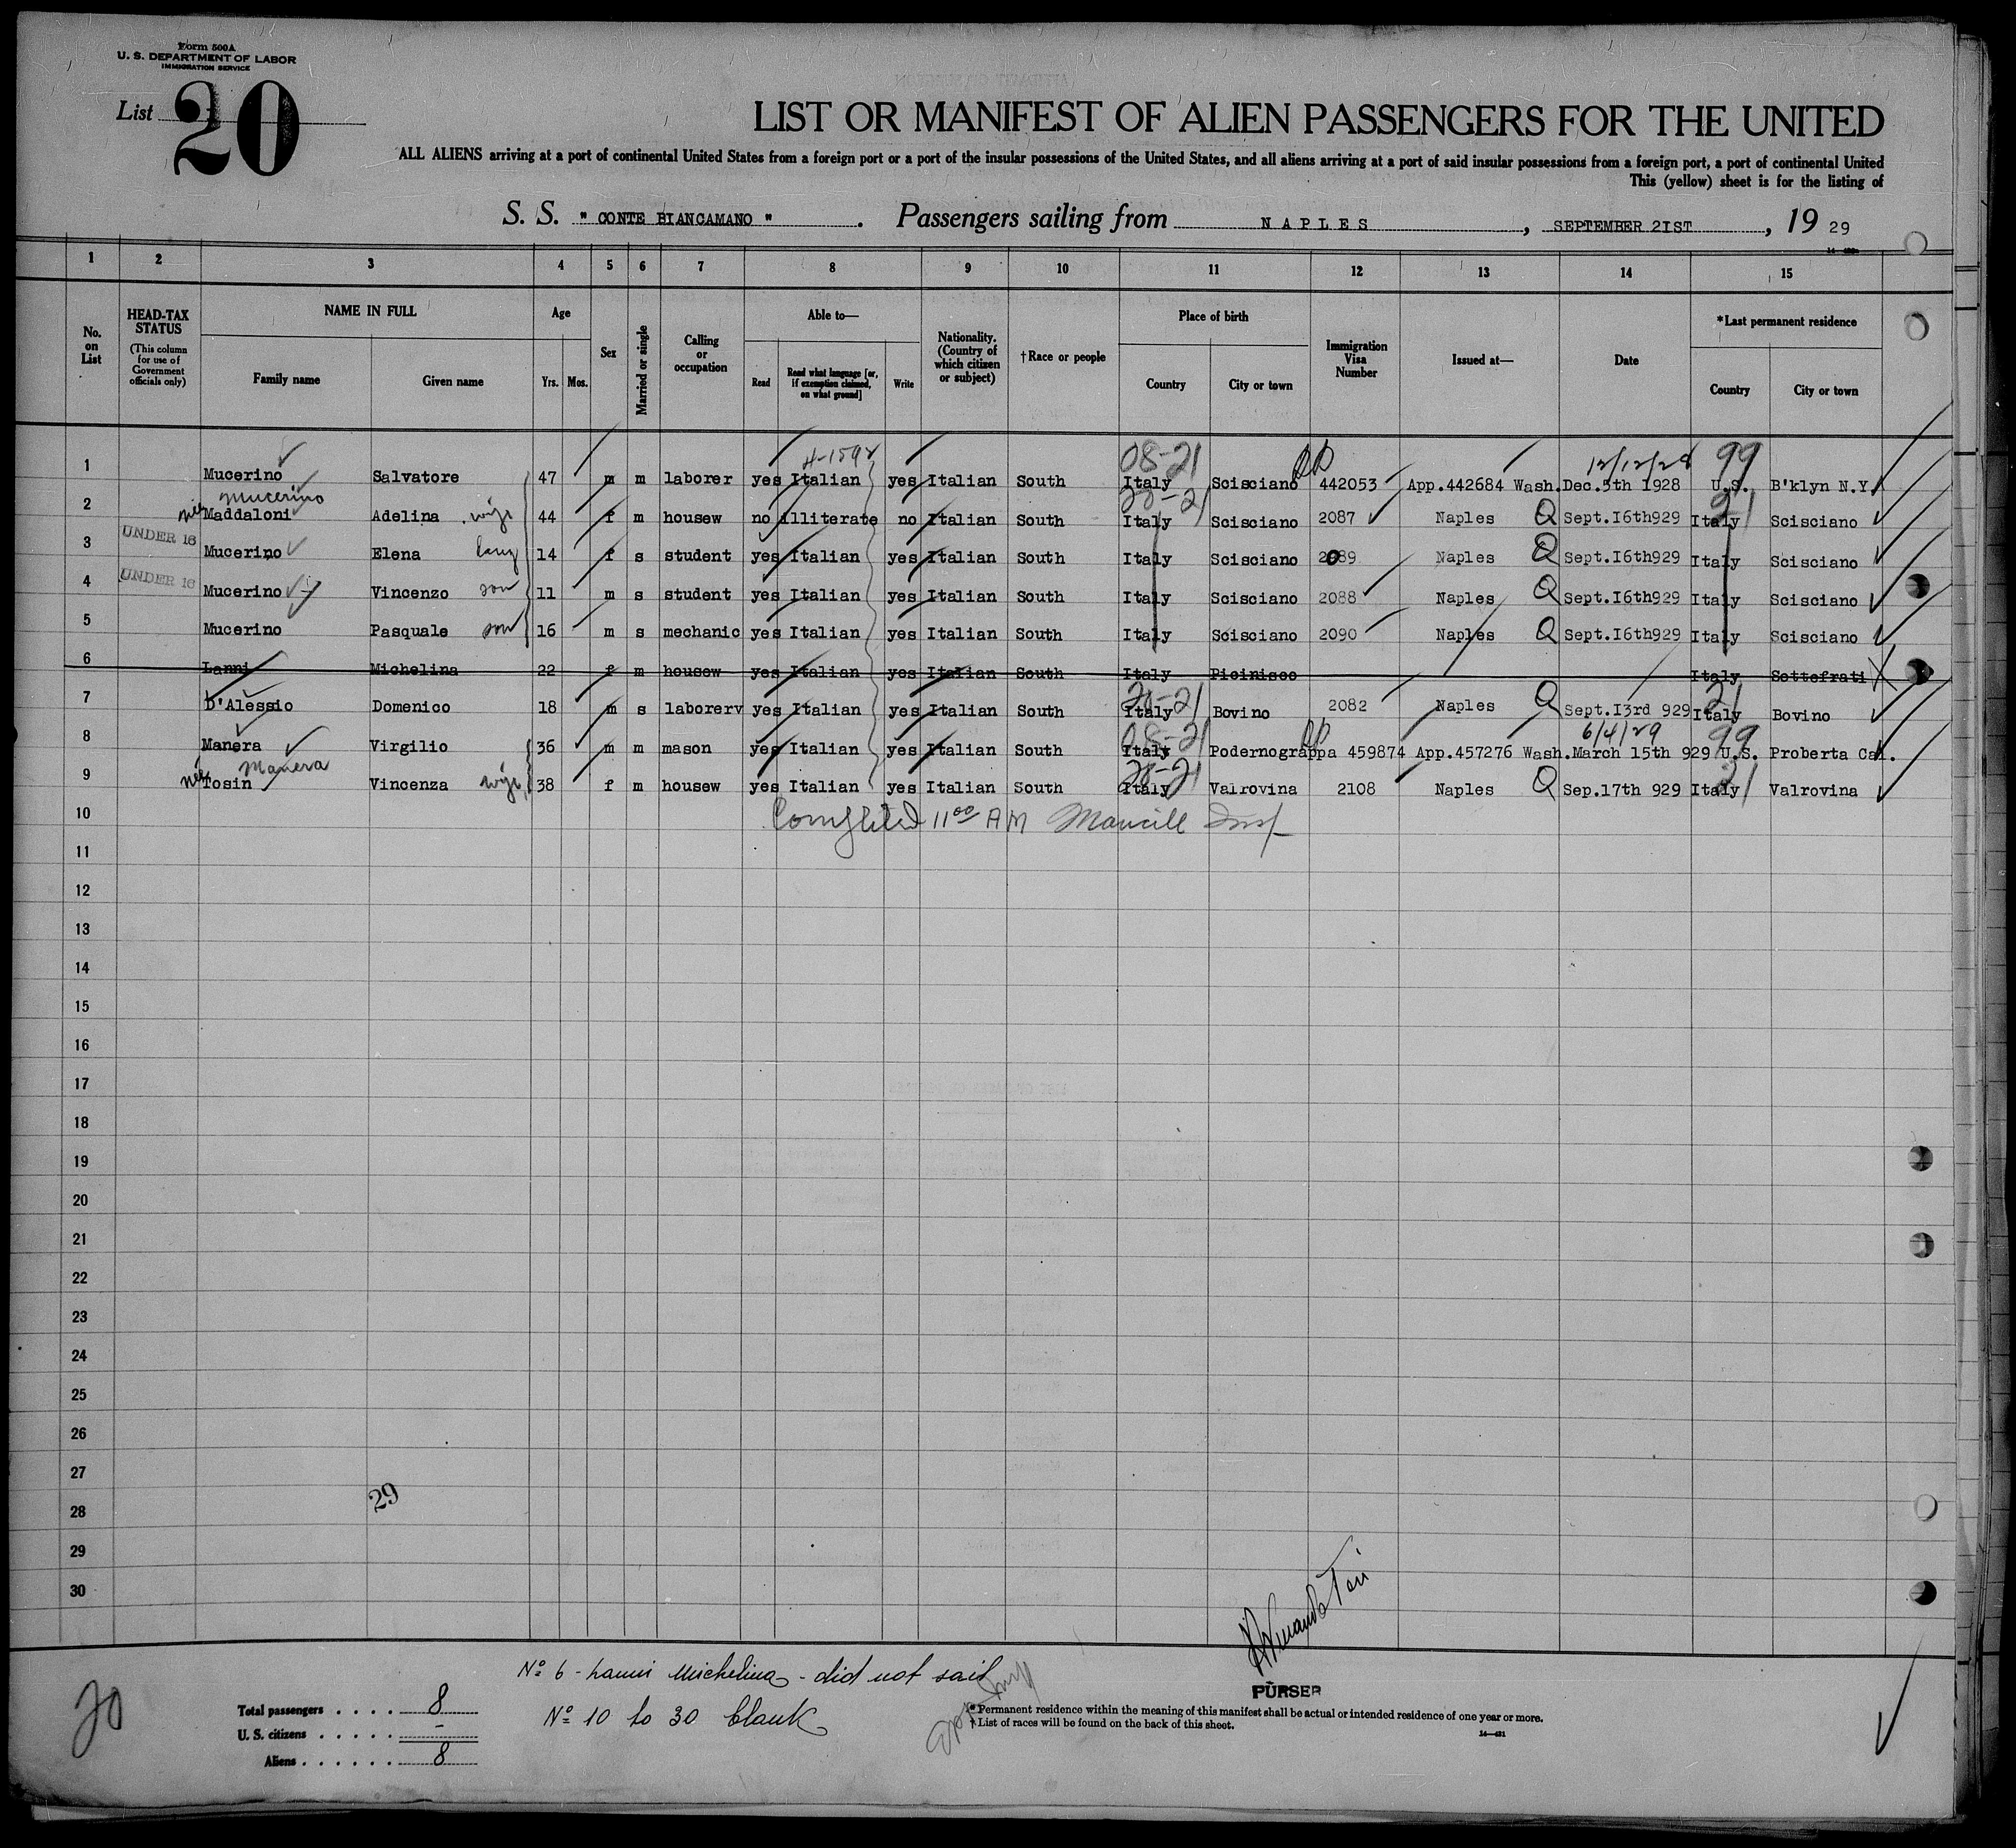 Form 500A
U. S. DEPARTMENT OF LABOR
IMMIGRATION SERVICE
List 20
LIST OR MANIFEST OF ALIEN PASSENGERS FOR THE UNITED
ALL ALIENS arriving at a port of continental United States from a foreign port or a port of the insular possessions of the United States, and all aliens arriving at a port of said insular possessions from a foreign port, a port of continental United
This (yellow) sheet is for the listing of
S. S. " CONTE BIANCAMANO ". Passengers sailing from NAPLES, SEPTEMBER 21ST, 19 29
1 2 3 4 5 6 7 8 9 10 11 12 13 14 15
No. on List
HEAD-TAX STATUS
(This column for use of Government officials only)
NAME IN FULL
Family name Given name
Age
Yrs. Mos.
Sex
Married or single
Calling or occupation
Able to—
Read
Read what language [or, if exemption claimed, on what ground]
Write
Nationality. (Country of which citizen or subject)
†Race or people
Place of birth
Country City or town
Immigration Visa Number
Issued at—
Date
*Last permanent residence
Country City or town
4-1592 08-21 12/12/28 99
1 Mucerino Salvatore 47 m m laborer yes Italian yes Italian South Italy Scisciano 442053 App.442684 Wash. Dec.5th 1928 U.S. B'klyn N.Y.
Mucerino 21
2 née Maddaloni Adelina wife 44 f m housew no illiterate no Italian South Italy Scisciano 2087 Naples Q Sept.I6th929 Italy Scisciano
3 UNDER 16 Mucerino Elena 14 f s student yes Italian yes Italian South Italy Scisciano 2089 Naples Q Sept.I6th929 Italy Scisciano
4 UNDER 16 Mucerino Vincenzo son 11 m s student yes Italian yes Italian South Italy Scisciano 2088 Naples Q Sept.I6th929 Italy Scisciano
5 Mucerino Pasquale son 16 m s mechanic yes Italian yes Italian South Italy Scisciano 2090 Naples Q Sept.I6th929 Italy Scisciano
6 Lanni Michelina 22 f m housew yes Italian yes Italian South Italy Picinisco Italy Settefrati
7 D'Alessio Domenico 18 m s laborerv yes Italian yes Italian South Italy Bovino 2082 Naples Q Sept.I3rd 929 Italy Bovino
08-21 6/4/29 99
8 Manera Virgilio 36 m m mason yes Italian yes Italian South Italy Podernograppa 459874 App.457276 Wash. March 15th 929 U.S. Proberta Cal.
Manera 21
9 née Tosin Vincenza wife 38 f m housew yes Italian yes Italian South Italy Valrovina 2108 Naples Q Sep.17th 929 Italy Valrovina
10 Completed 11 00 AM
11
12
13
14
15
16
17
18
19
20
21
22
23
24
25
26
27
28 29
29
30
Nº 6 - Lanni Michelina - did not sail
Nº 10 to 30 blank
20
Total passengers 8
U. S. citizens -
Aliens 8
PURSER
* Permanent residence within the meaning of this manifest shall be actual or intended residence of one year or more.
† List of races will be found on the back of this sheet.